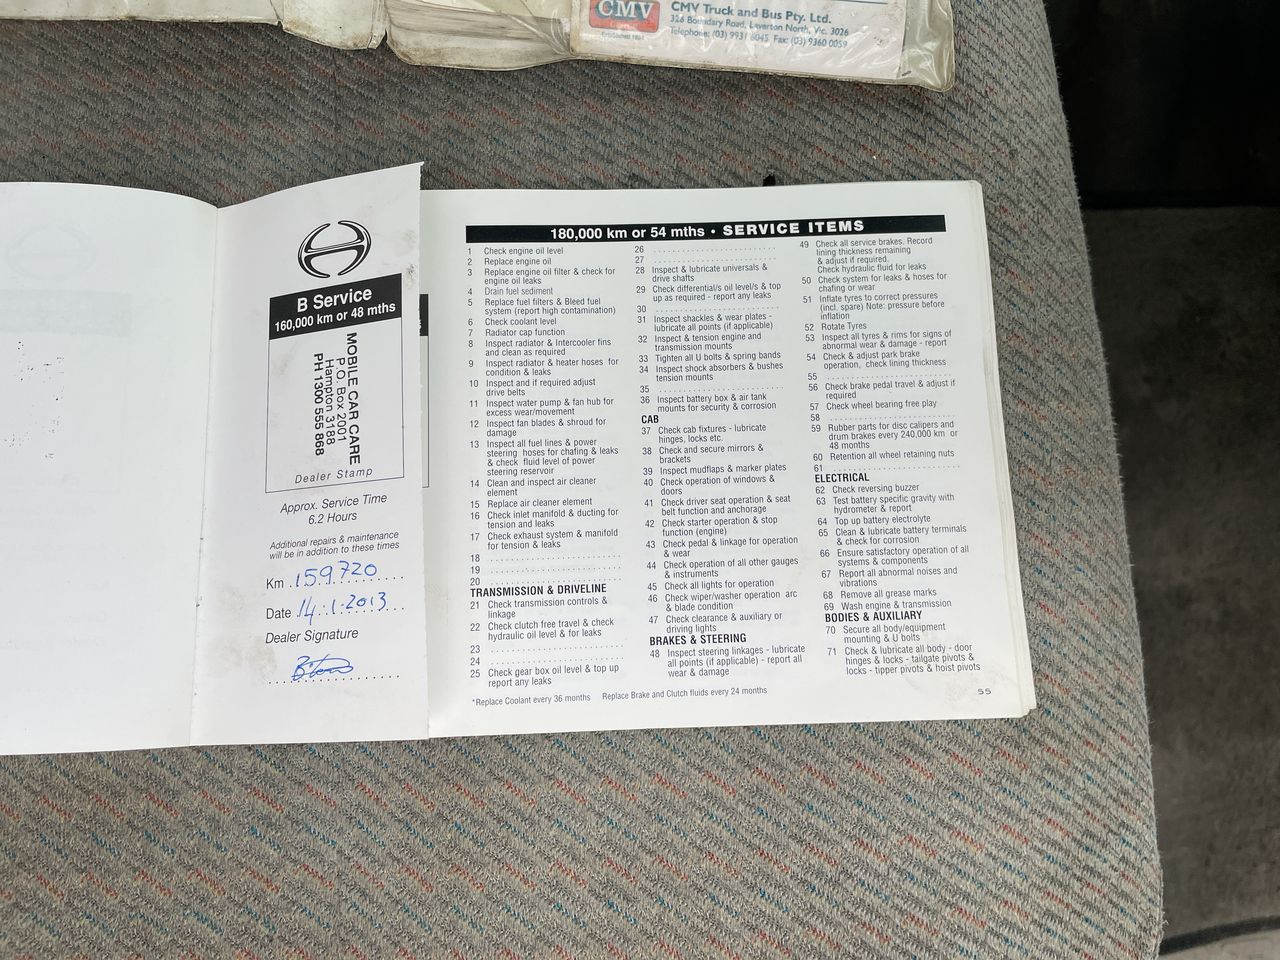 CMV
Established 1861
CMV Truck and Bus Pty. Ltd.
326 Boundary Road, Laverton North, Vic. 3026
Telephone: (03) 9931 6045 Fax: (03) 9360 0059
B Service
160,000 km or 48 mths
MOBILE CAR CARE
P.O. Box 2001
Hampton 3188
PH 1300 555 868
Dealer Stamp
Approx. Service Time
6.2 Hours
Additional repairs & maintenance
will be in addition to these times
Km 159.720
Date 14.1.2013
Dealer Signature
180,000 km or 54 mths • SERVICE ITEMS
1 Check engine oil level
2 Replace engine oil
3 Replace engine oil filter & check for
engine oil leaks
4 Drain fuel sediment
5 Replace fuel filters & Bleed fuel
system (report high contamination)
6 Check coolant level
7 Radiator cap function
8 Inspect radiator & Intercooler fins
and clean as required
9 Inspect radiator & heater hoses for
condition & leaks
10 Inspect and if required adjust
drive belts
11 Inspect water pump & fan hub for
excess wear/movement
12 Inspect fan blades & shroud for
damage
13 Inspect all fuel lines & power
steering hoses for chafing & leaks
& check fluid level of power
steering reservoir
14 Clean and inspect air cleaner
element
15 Replace air cleaner element
16 Check inlet manifold & ducting for
tension and leaks
17 Check exhaust system & manifold
for tension & leaks
18
19
20
TRANSMISSION & DRIVELINE
21 Check transmission controls &
linkage
22 Check clutch free travel & check
hydraulic oil level & for leaks
23
24
25 Check gear box oil level & top up
report any leaks
26
27
28 Inspect & lubricate universals &
drive shafts
29 Check differential/s oil level/s & top
up as required - report any leaks
30
31 Inspect shackles & wear plates -
lubricate all points (if applicable)
32 Inspect & tension engine and
transmission mounts
33 Tighten all U bolts & spring bands
34 Inspect shock absorbers & bushes
tension mounts
35
36 Inspect battery box & air tank
mounts for security & corrosion
CAB
37 Check cab fixtures - lubricate
hinges, locks etc.
38 Check and secure mirrors &
brackets
39 Inspect mudflaps & marker plates
40 Check operation of windows &
doors
41 Check driver seat operation & seat
belt function and anchorage
42 Check starter operation & stop
function (engine)
43 Check pedal & linkage for operation
& wear
44 Check operation of all other gauges
& instruments
45 Check all lights for operation
46 Check wiper/washer operation arc
& blade condition
47 Check clearance & auxiliary or
driving lights
BRAKES & STEERING
48 Inspect steering linkages - lubricate
all points (if applicable) - report all
wear & damage
49 Check all service brakes. Record
lining thickness remaining
& adjust if required.
Check hydraulic fluid for leaks
50 Check system for leaks & hoses for
chafing or wear
51 Inflate tyres to correct pressures
(incl. spare) Note: pressure before
inflation
52 Rotate Tyres
53 Inspect all tyres & rims for signs of
abnormal wear & damage - report
54 Check & adjust park brake
operation, check lining thickness
55
56 Check brake pedal travel & adjust if
required
57 Check wheel bearing free play
58
59 Rubber parts for disc calipers and
drum brakes every 240,000 km or
48 months
60 Retention all wheel retaining nuts
61
ELECTRICAL
62 Check reversing buzzer
63 Test battery specific gravity with
hydrometer & report
64 Top up battery electrolyte
65 Clean & lubricate battery terminals
& check for corrosion
66 Ensure satisfactory operation of all
systems & components
67 Report all abnormal noises and
vibrations
68 Remove all grease marks
69 Wash engine & transmission
BODIES & AUXILIARY
70 Secure all body/equipment
mounting & U bolts
71 Check & lubricate all body - door
hinges & locks - tailgate pivots &
locks - tipper pivots & hoist pivots
*Replace Coolant every 36 months Replace Brake and Clutch fluids every 24 months
55